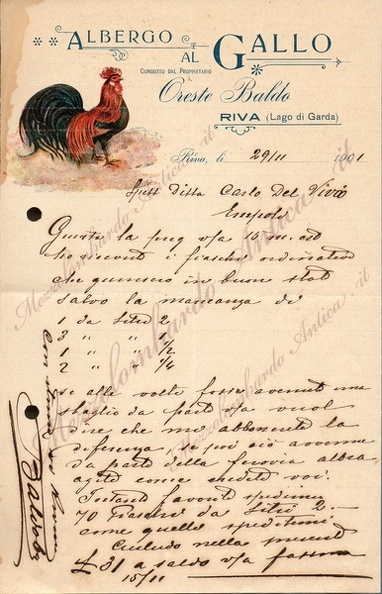 ALBERGO
AL GALLO
CONDOTTO DAL PROPRIETARIO
Oreste Baldo
RIVA (Lago di Garda)
Riva, li 29/11 1901
Spett Ditta Carlo Del Vivo
Empoli
Giusta la preg v/a
ho ricevuto i fiaschi ordinativi
che giunsero in buon stato
salvo la mancanza di
1 da Litri 2
3 " " 1
1 " " 1/2
2 " " 1/4
se alle volte fosse avvenuto una
sbaglio da parte v/a vuol
dire che me abbonerete la
differenza, se poi ciò avvenne
da parte della ferovia allora
agite come credete voi.
Intanto favorite spedirmi
70 Fiaschi da Litri 2.—
come quelli speditemi.
Includo nella presente
£ 31 a saldo v/a fattura
15/11
Con stima
Baldo
Mezzolombardo Antica.it
Mezzolombardo Antica.it